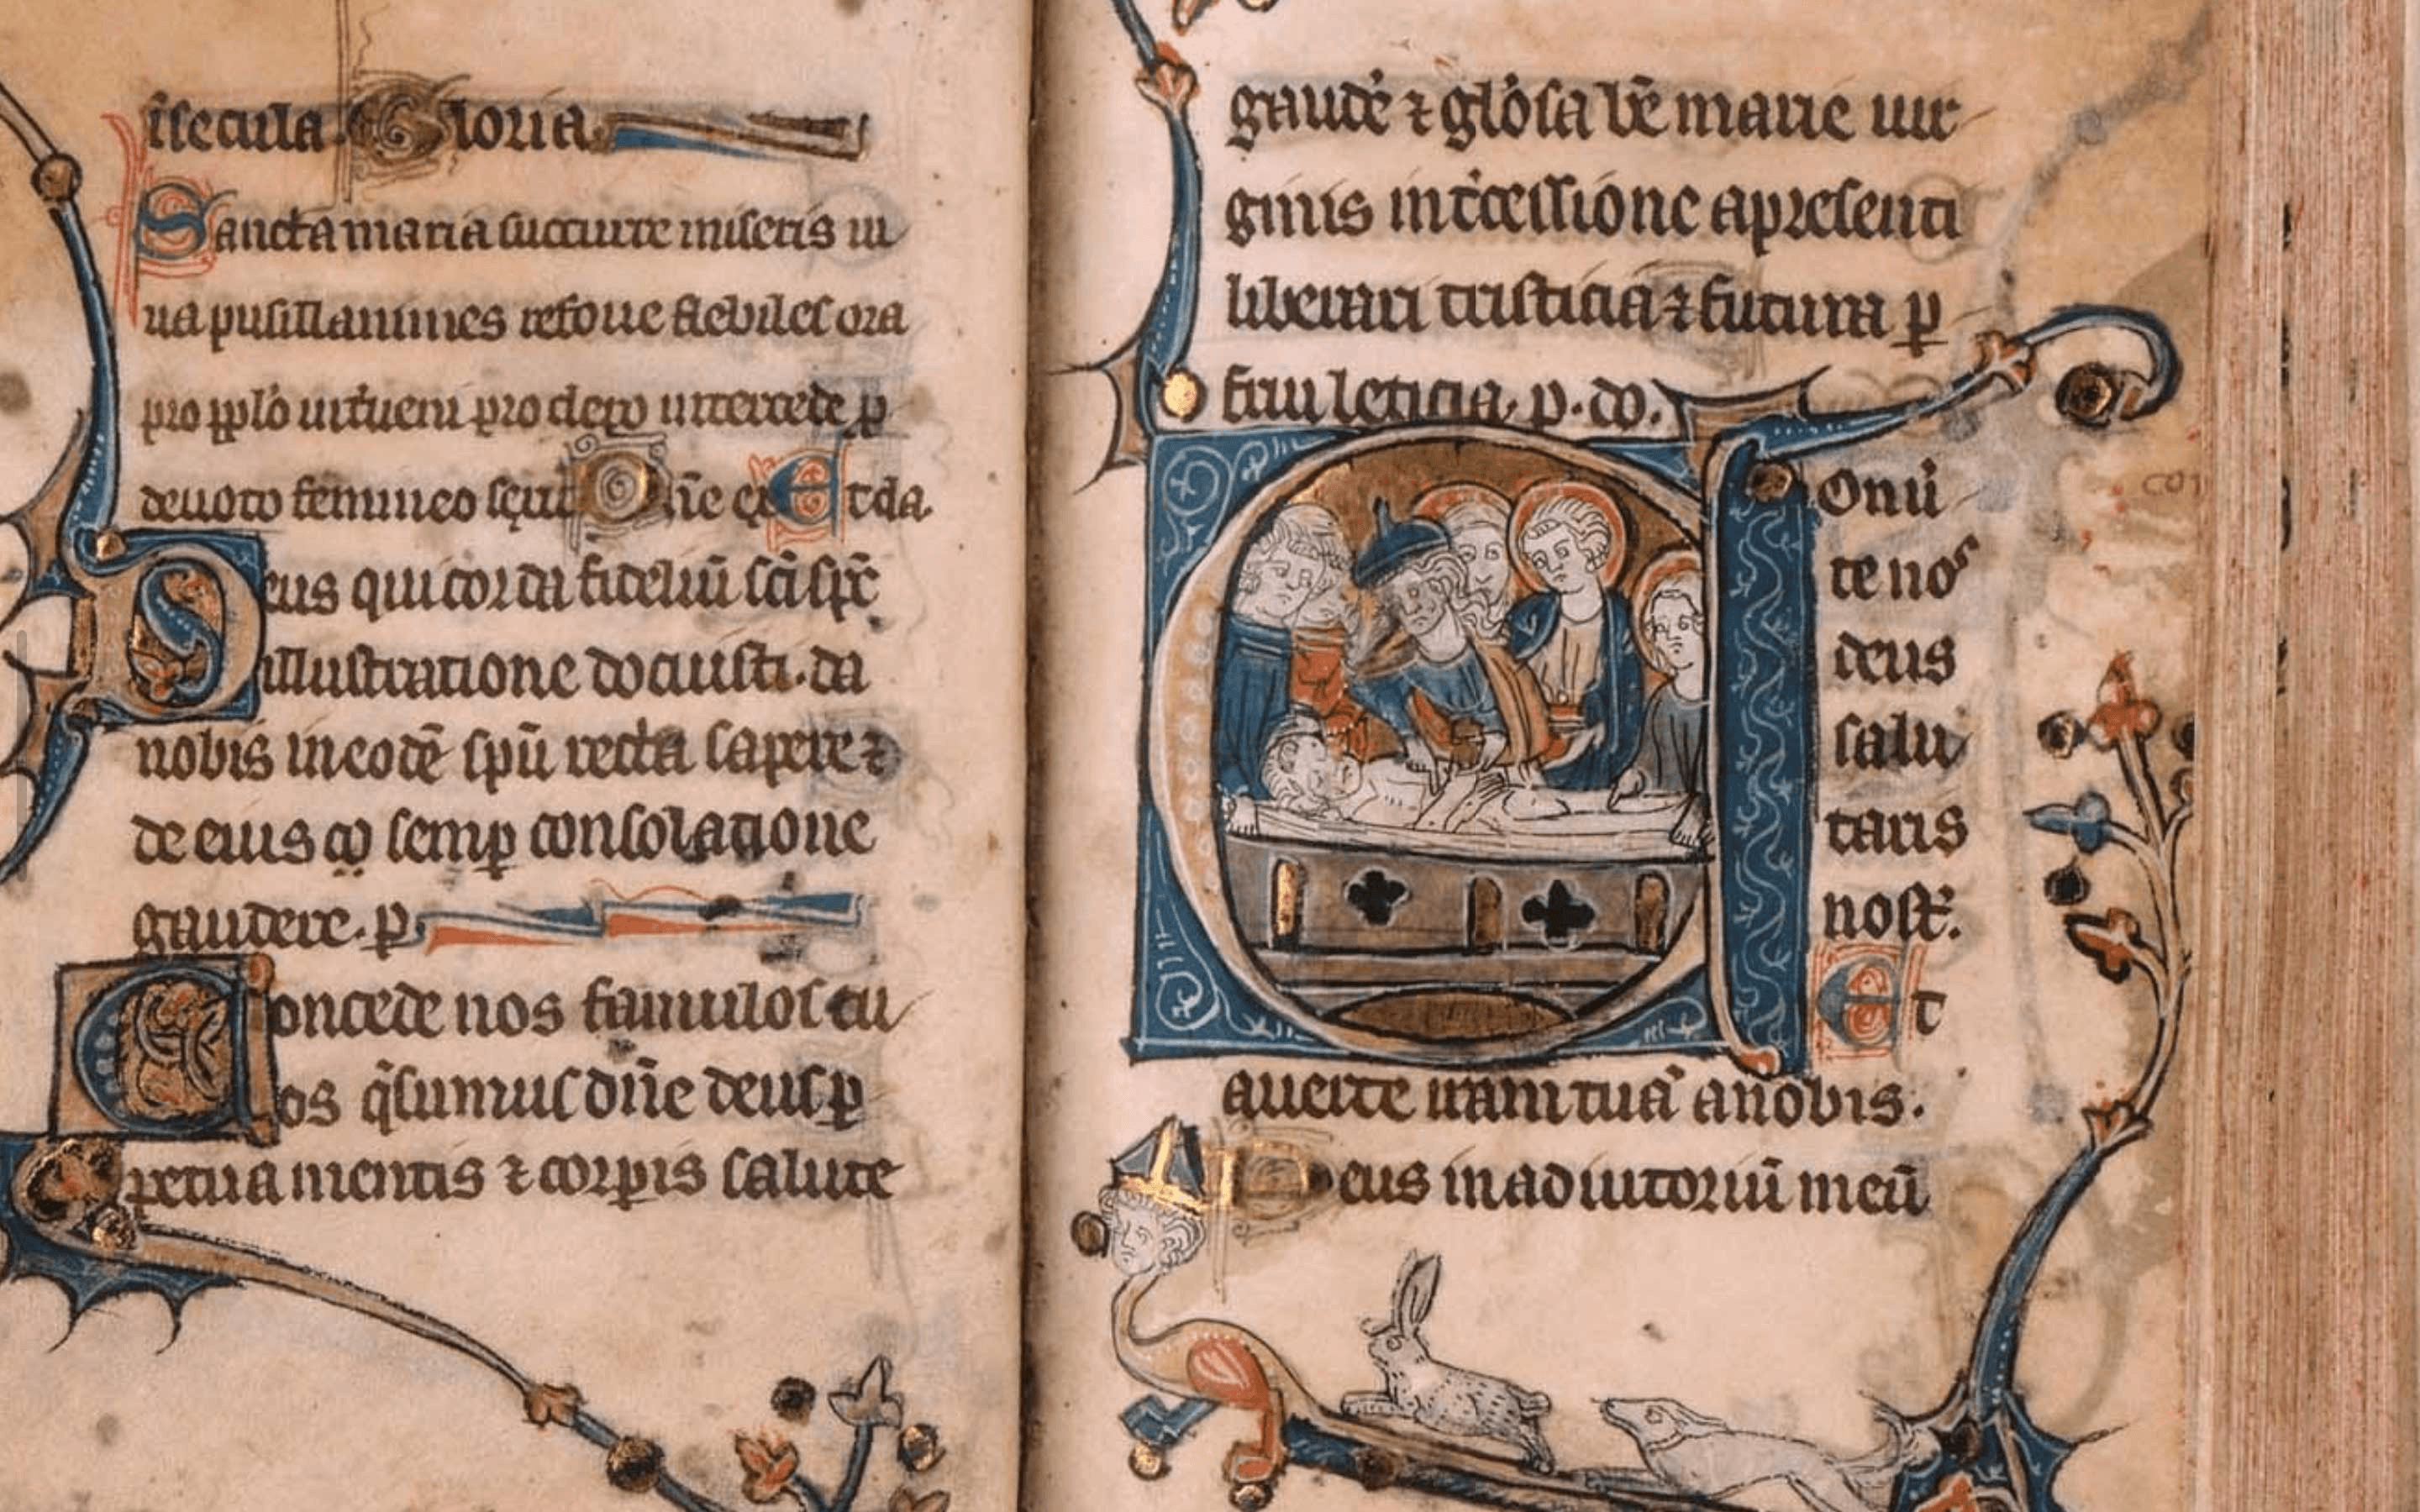 īsecula. Gloria
Sancta maria succurre miseris iu
ua pusillanimes refoue flebiles ora
pro pplo interueni pro clero intercede p
deuoto femineo sexu Dne ex Et da.
Deus qui corda fideliū sci spc
illustratione docuisti. da
nobis in eodē spū recta sapere ⁊
de eius semp consolatione
gaudere. p
Concede nos famulos tu
os qsumus dne deus p
petua mentis ⁊ corpis salute
gaude ⁊ glosa be marie uir
ginis intcessione a presenti
liberari tristicia ⁊ futura p
frui leticia. p. do.
Conu
te nos
deus
salu
taris
nost.
Et
auerte iram tuā a nobis.
Deus in adiutoriū meū